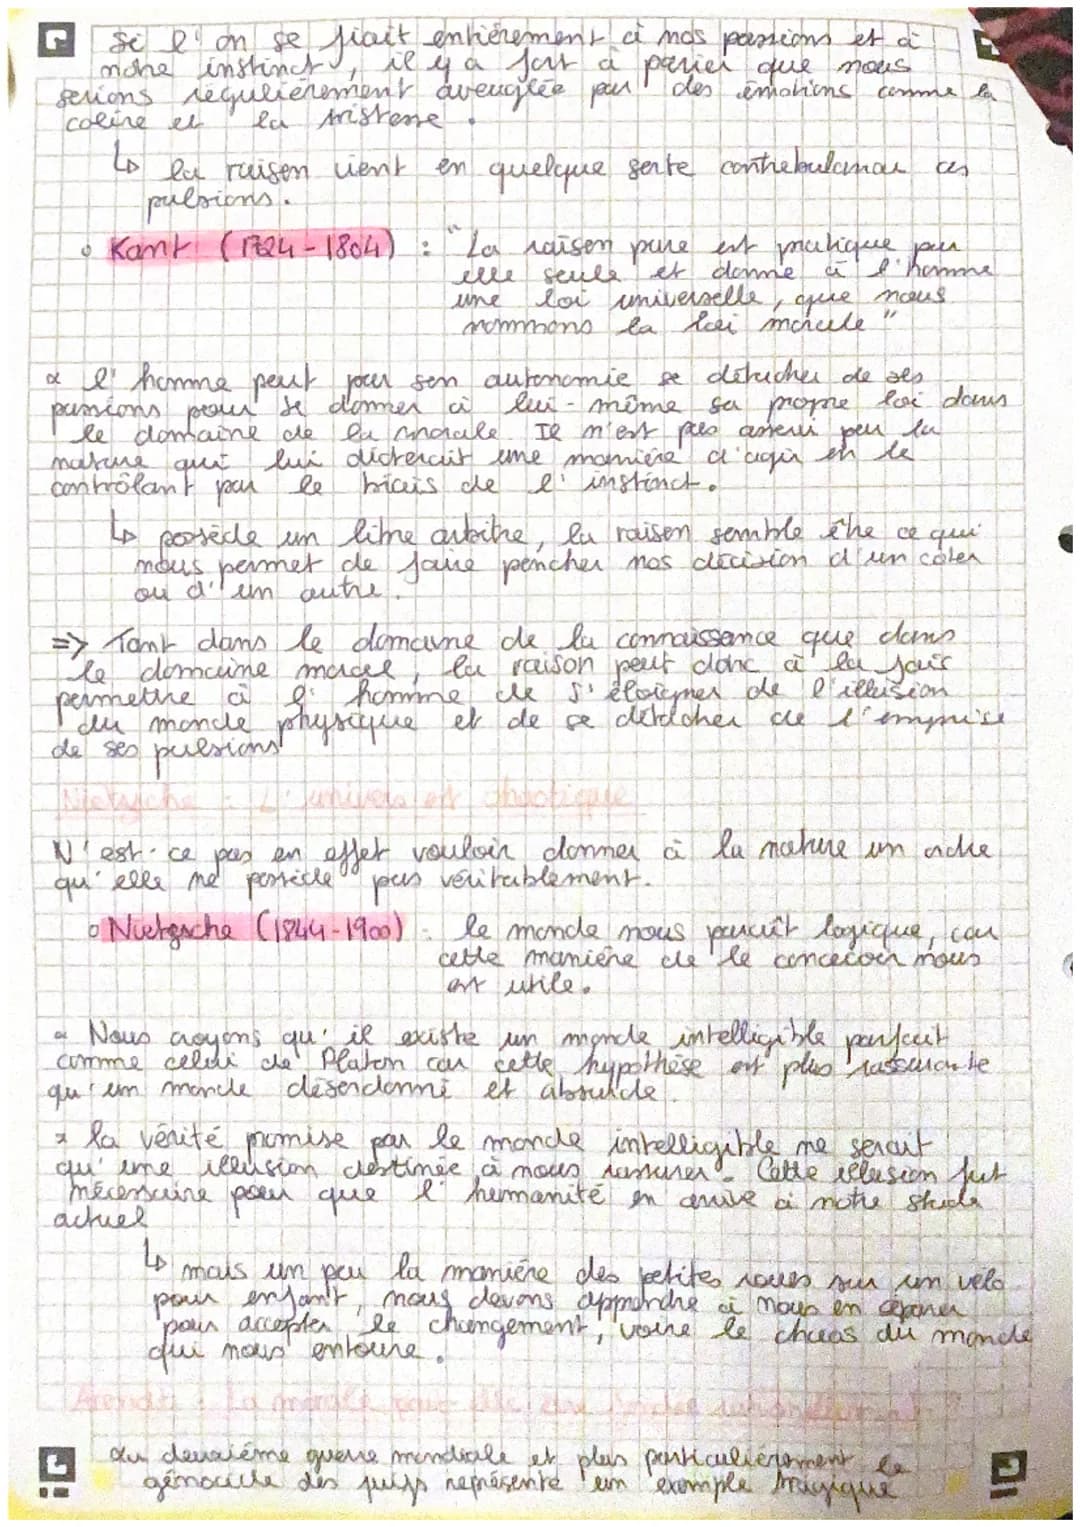 Si l'on se fiait entièrement à nos passions et à
notre instinct, il y a fort à parier que nous
serions régulièrement aveuglée par des émotions comme la
colère et la tristesse.
↳ la raison vient en quelque sorte contrebalancer ces
pulsions.
o Kant (1724-1804) : "La raison pure est pratique par
elle seule et donne à l'homme
une loi universelle, que nous
nommons la loi morale"
l'homme peut pour son autonomie se détacher de ses
passions pour se donner à lui-même sa propre loi dans
le domaine de la morale. Il n'est pas asservi par la
nature qui lui dicterait une manière d'agir en le
contrôlant par le biais de l'instinct.
↳ possède un libre arbitre, la raison semble être ce qui
nous permet de faire pencher nos décision d'un coter
ou d'un autre.
=> Tant dans le domaine de la connaissance que dans
le domaine moral, la raison peut donc à la fois
permettre à l'homme de s'éloigner de l'illusion
du monde physique et de se détacher de l'emprise
de ses pulsions
Nietzsche : L'univers est chaotique
N'est-ce pas en effet vouloir donner à la nature un ordre
qu'elle ne possède pas véritablement.
o Nietzsche (1844-1900) : le monde nous paraît logique, car
cette manière de le concevoir nous
est utile.
Nous croyons qu'il existe un monde intelligible parfait
comme celui de Platon car cette hypothèse est plus rassurante
qu'un monde désordonné et absurde.
la vérité promise par le monde intelligible ne serait
qu'une illusion destinée à nous rassurer. Cette illusion fut
nécessaire pour que l'humanité en arrive à notre stade
actuel
↳ mais un peu la manière des petites roues sur un vélo
pour enfant, nous devons apprendre à nous en séparer
pour accepter le changement, voire le chaos du monde
qui nous entoure.
Arendt : La morale peut-elle être fondée rationnellement ?
La deuxième guerre mondiale et plus particulièrement le
génocide des juifs représente un exemple tragique